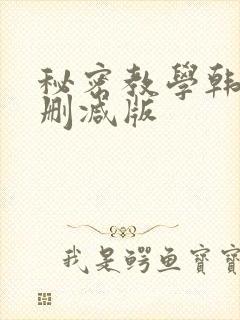 秘密教學韩
删减版
我是鳄鱼寶寶